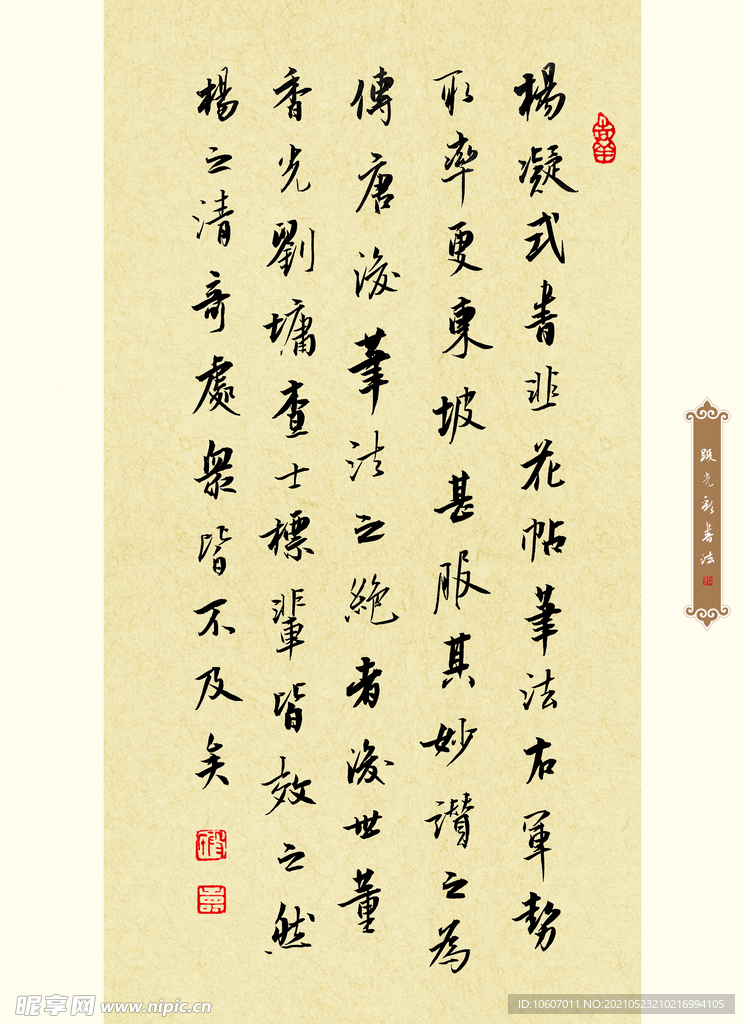 楊凝式書韭花帖筆法右軍勢
取率更東坡甚服其妙讚之為
傳唐後筆法之絶者後世董
香光劉墉查士標輩皆效之然
楊之清奇處衆皆不及矣
光彩書法
昵享网 www.nipic.cn
ID:10607011 NO:20210523210216994105